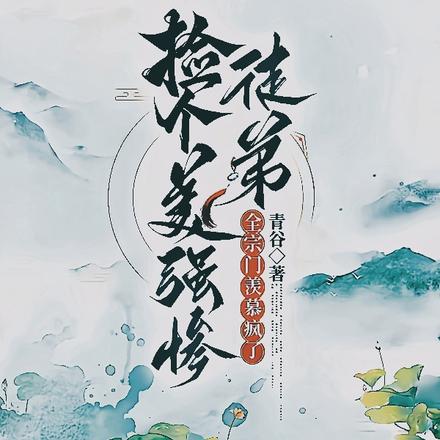 捡个美强惨
徒弟
全宗门羡慕疯了
青谷◇著